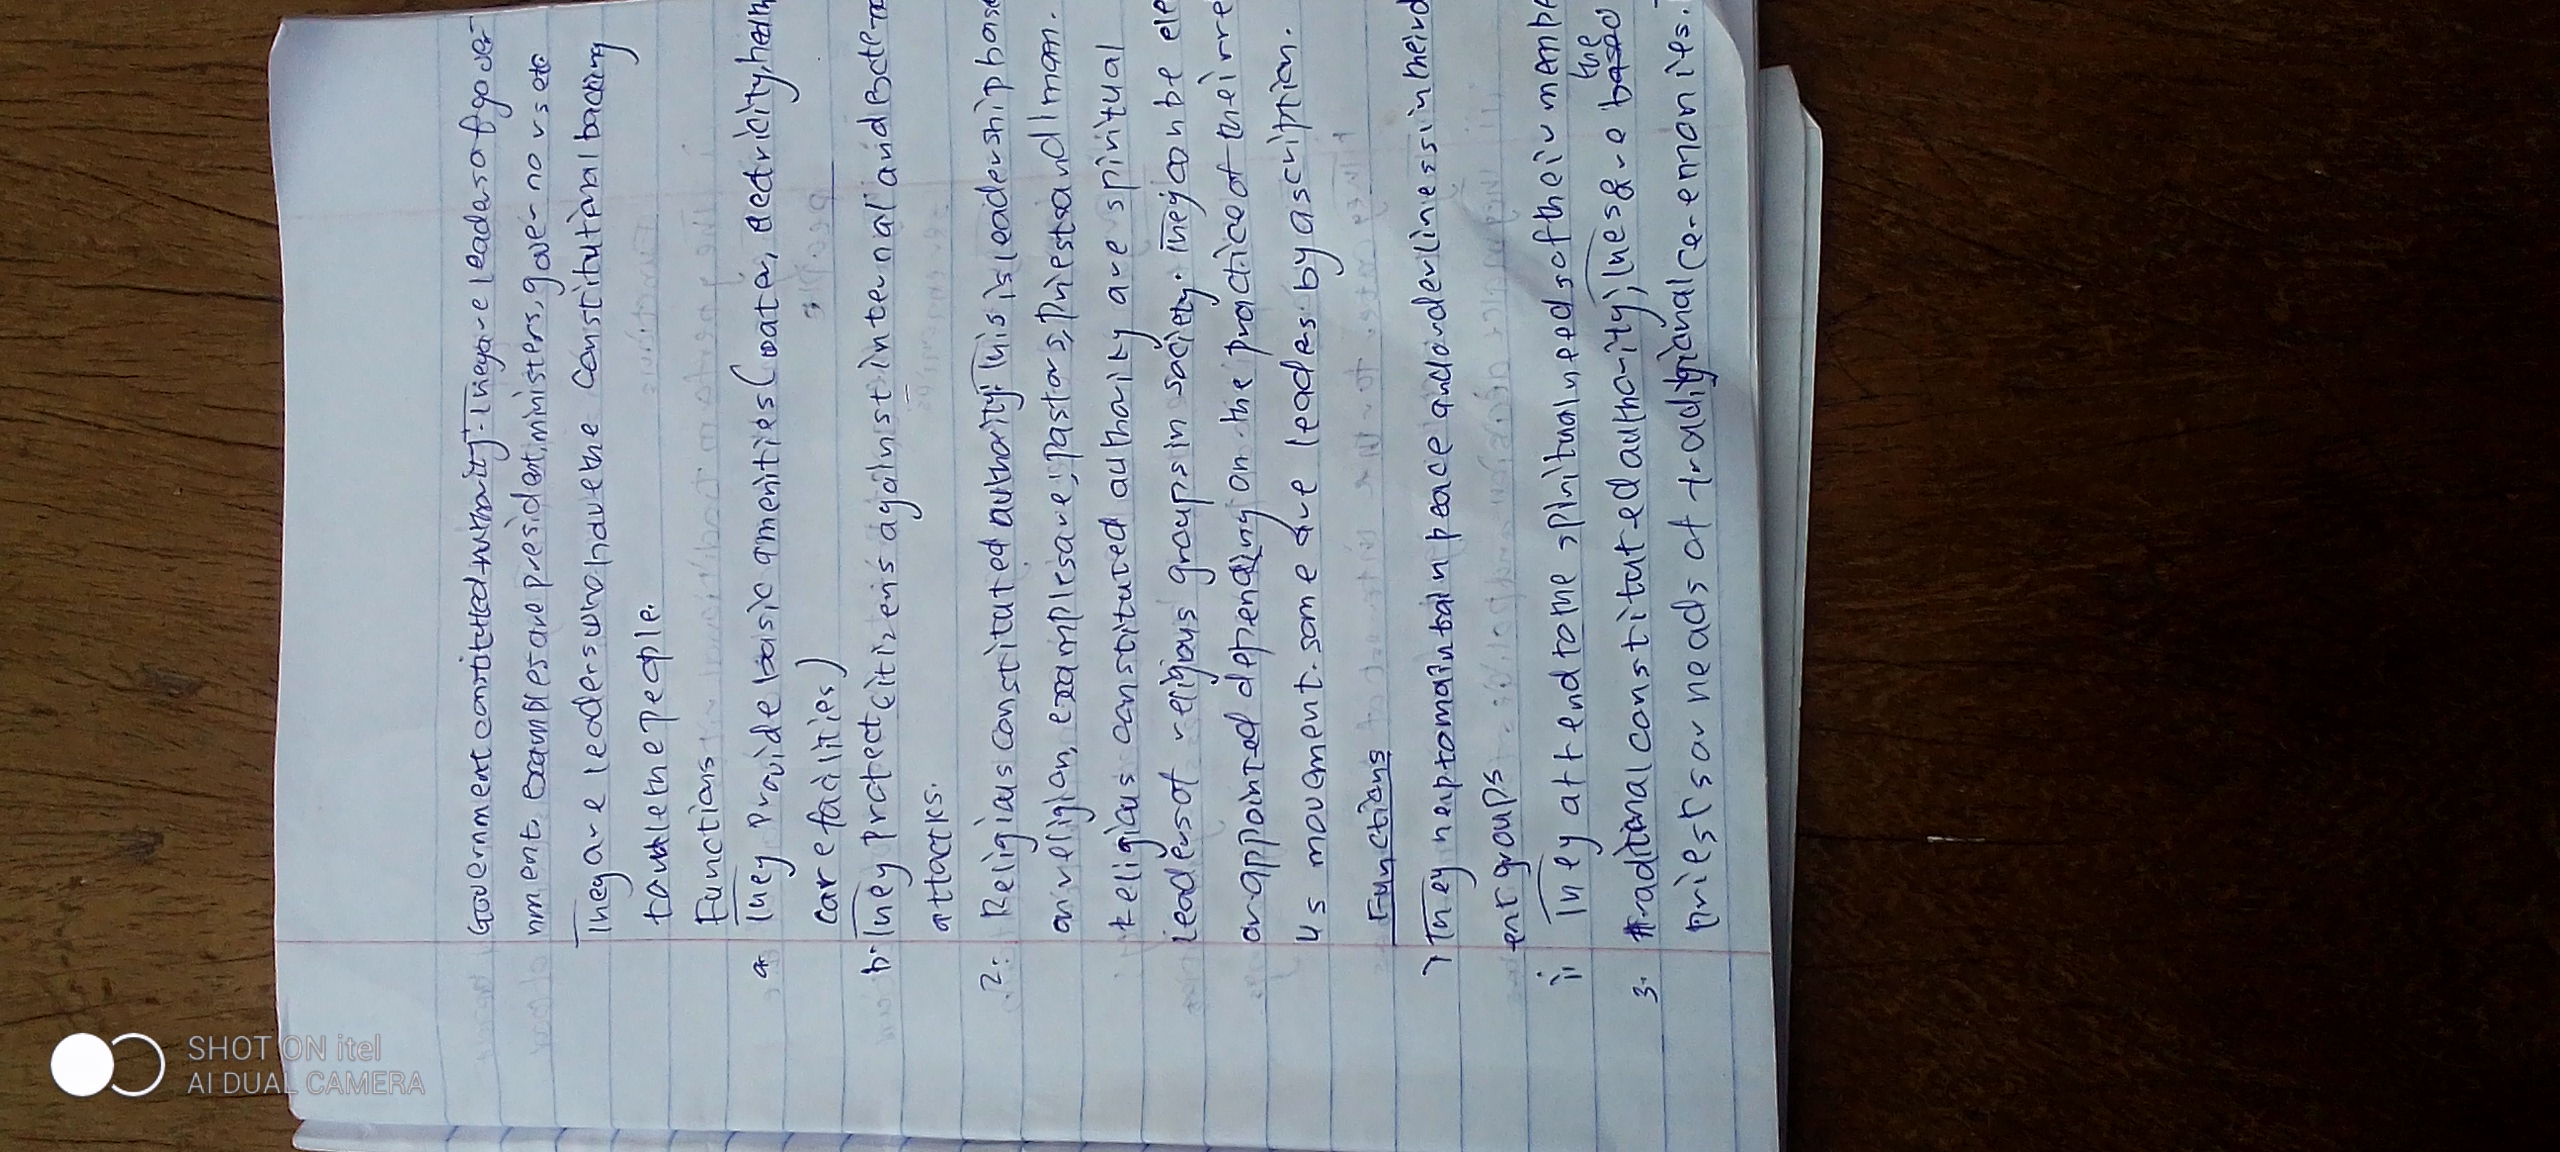 Government constituted authority:- They are leaders of gover-
nment. examples are president, ministers, governors etc
They are leaders who have the constitutional backing
to rule the people.
Functions
a. They provide basic amenities (water, electricity, health
care facilities)
b. They protect citizens against internal and Extern
attacks.
2. Religious constituted authority: This is leadership base
on religion, examples are; pastors, priests and Imam.
religious constituted authority are spiritual
leaders of religious groups in society. They can be ele
or appointed depending on the practice of their re
us movement. some are leaders by ascription.
Functions
i They help to maintain peace and orderliness in their d
ent groups
ii They attend to the spiritual needs of their membe
3. traditional constituted authority; These are the
priests or heads of traditional ceremonies.
SHOT ON itel
AI DUAL CAMERA